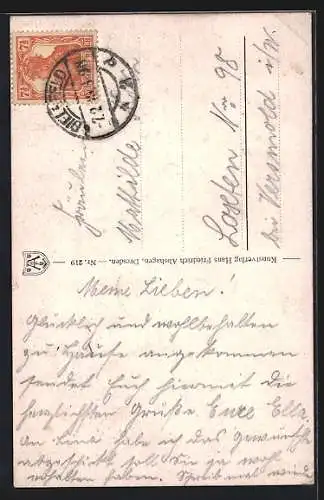 7½
BIELEFELD
Fräulein
Mathilde
Loxten Nro 98
bei Versmold i/W.
Kunstverlag Hans Friedrich Abshagen, Dresden. — Nr. 219
Meine Lieben!
Glücklich und wohlbehalten
zu Hause angekommen
sendet Euch hiermit die
herzlichsten Grüße Eure Ella
An Lina habe ich das Gewünschte
abgeschickt soll. Sie ja wohl
erhalten haben. Schreib mal wieder